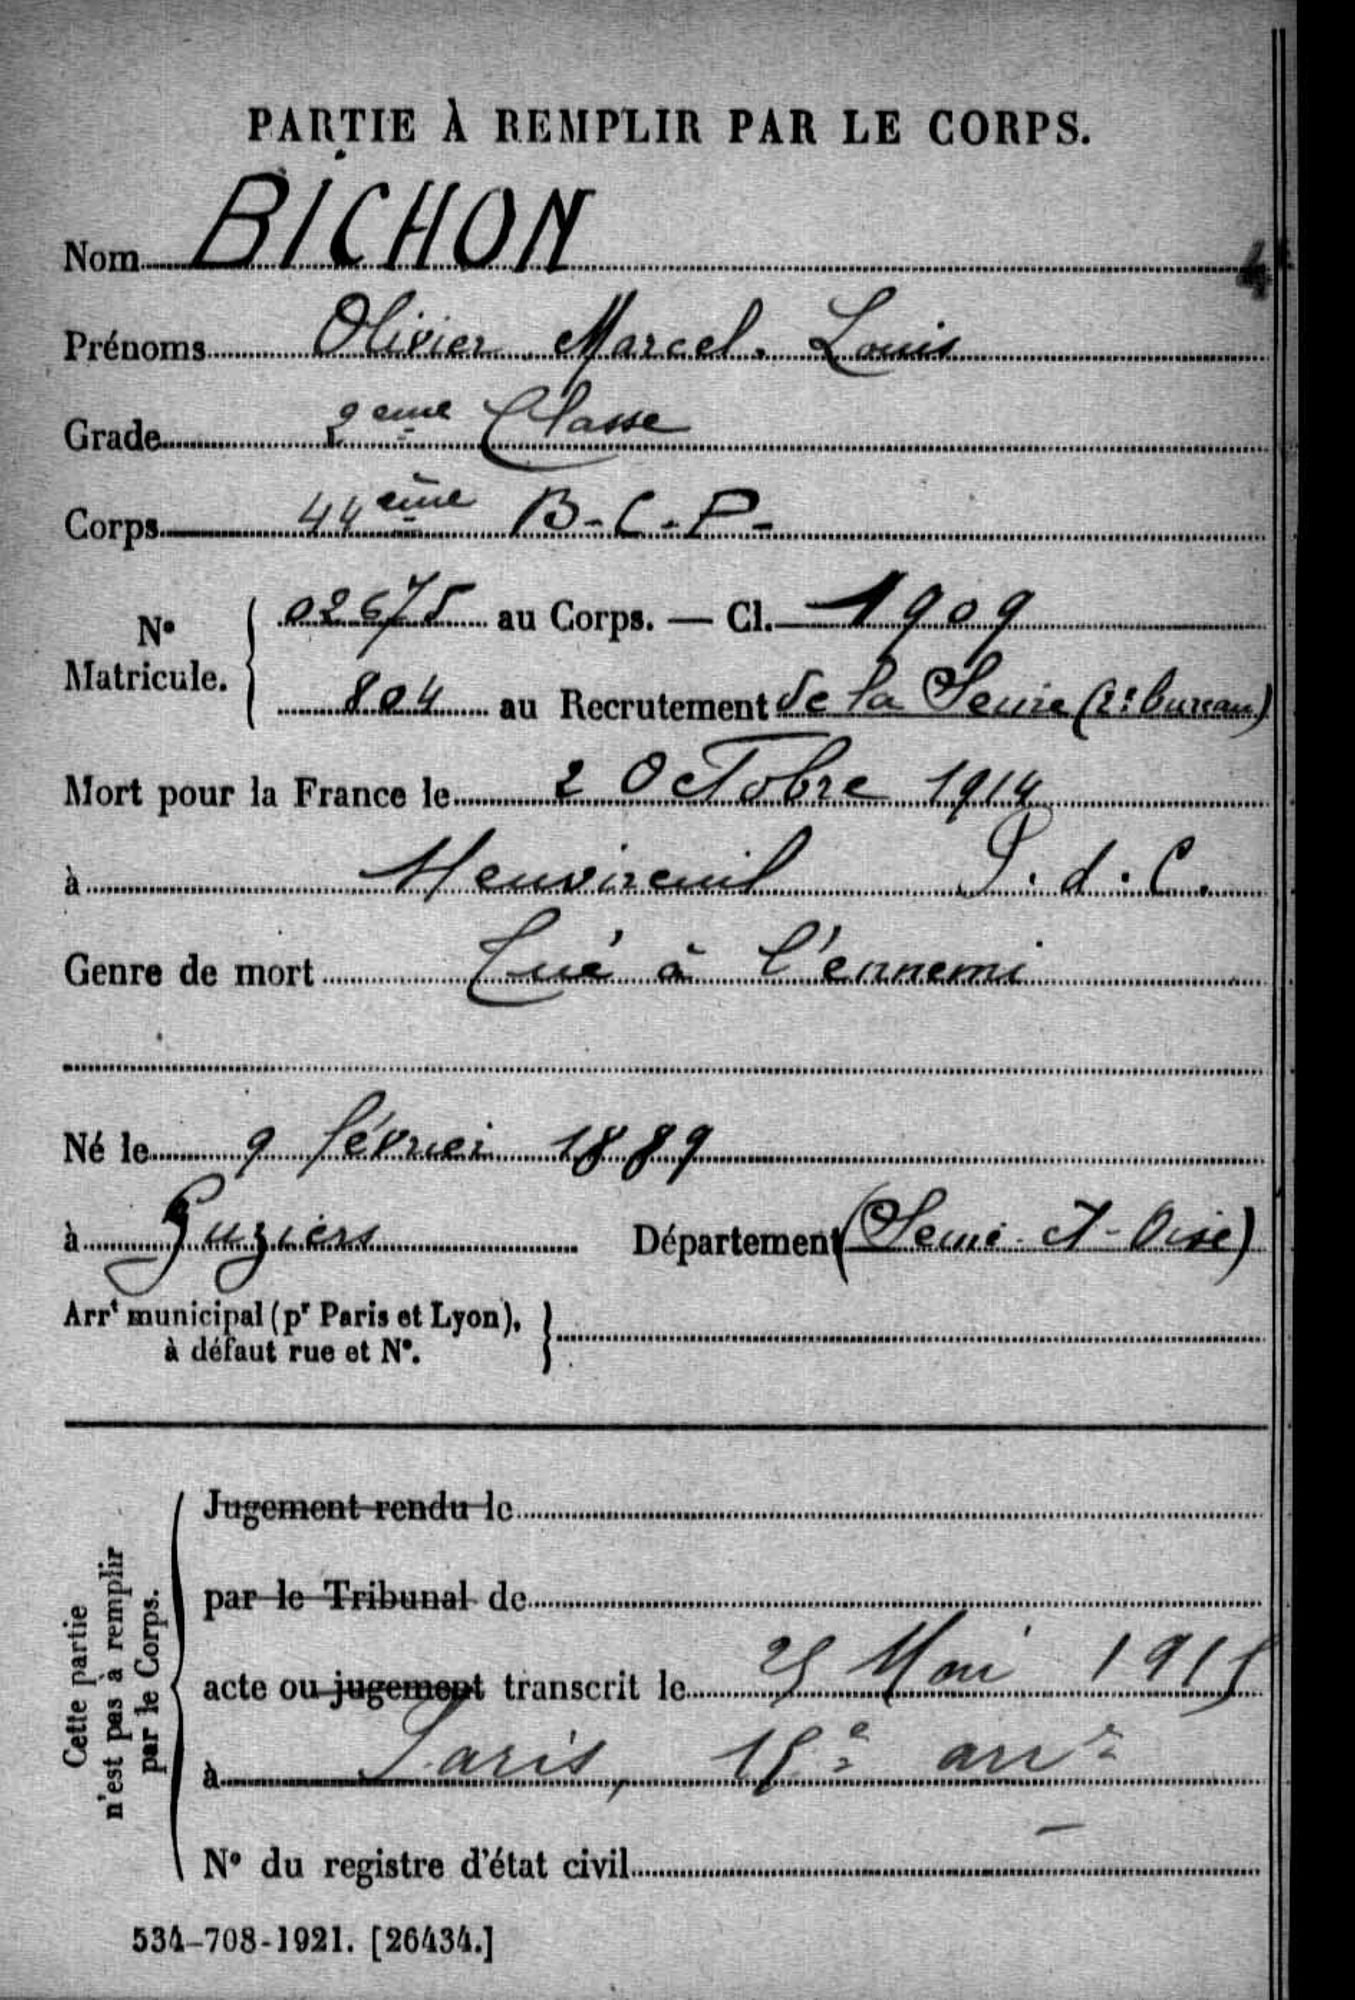 PARTIE À REMPLIR PAR LE CORPS.
Nom BICHON
4
Prénoms Olivier Marcel. Louis
Grade 2eme Classe
Corps 44eme B-C.P-
No Matricule. 02675 au Corps. — Cl. 1909
804 au Recrutement de la Seine (2e bureau)
Mort pour la France le 2 Octobre 1914
à Neuvireuil P.d.C.
Genre de mort Tué à l'ennemi
Né le 9 février 1889
à Département (Seine-et-Oise)
Arrt municipal (pr Paris et Lyon),
à défaut rue et No.
Cette partie
n'est pas à remplir
par le Corps.
Jugement rendu le
par le Tribunal de
acte ou jugement transcrit le 25 Mai 1915
à Paris, 15e arrt
No du registre d'état civil —
534-708-1921. [26434.]